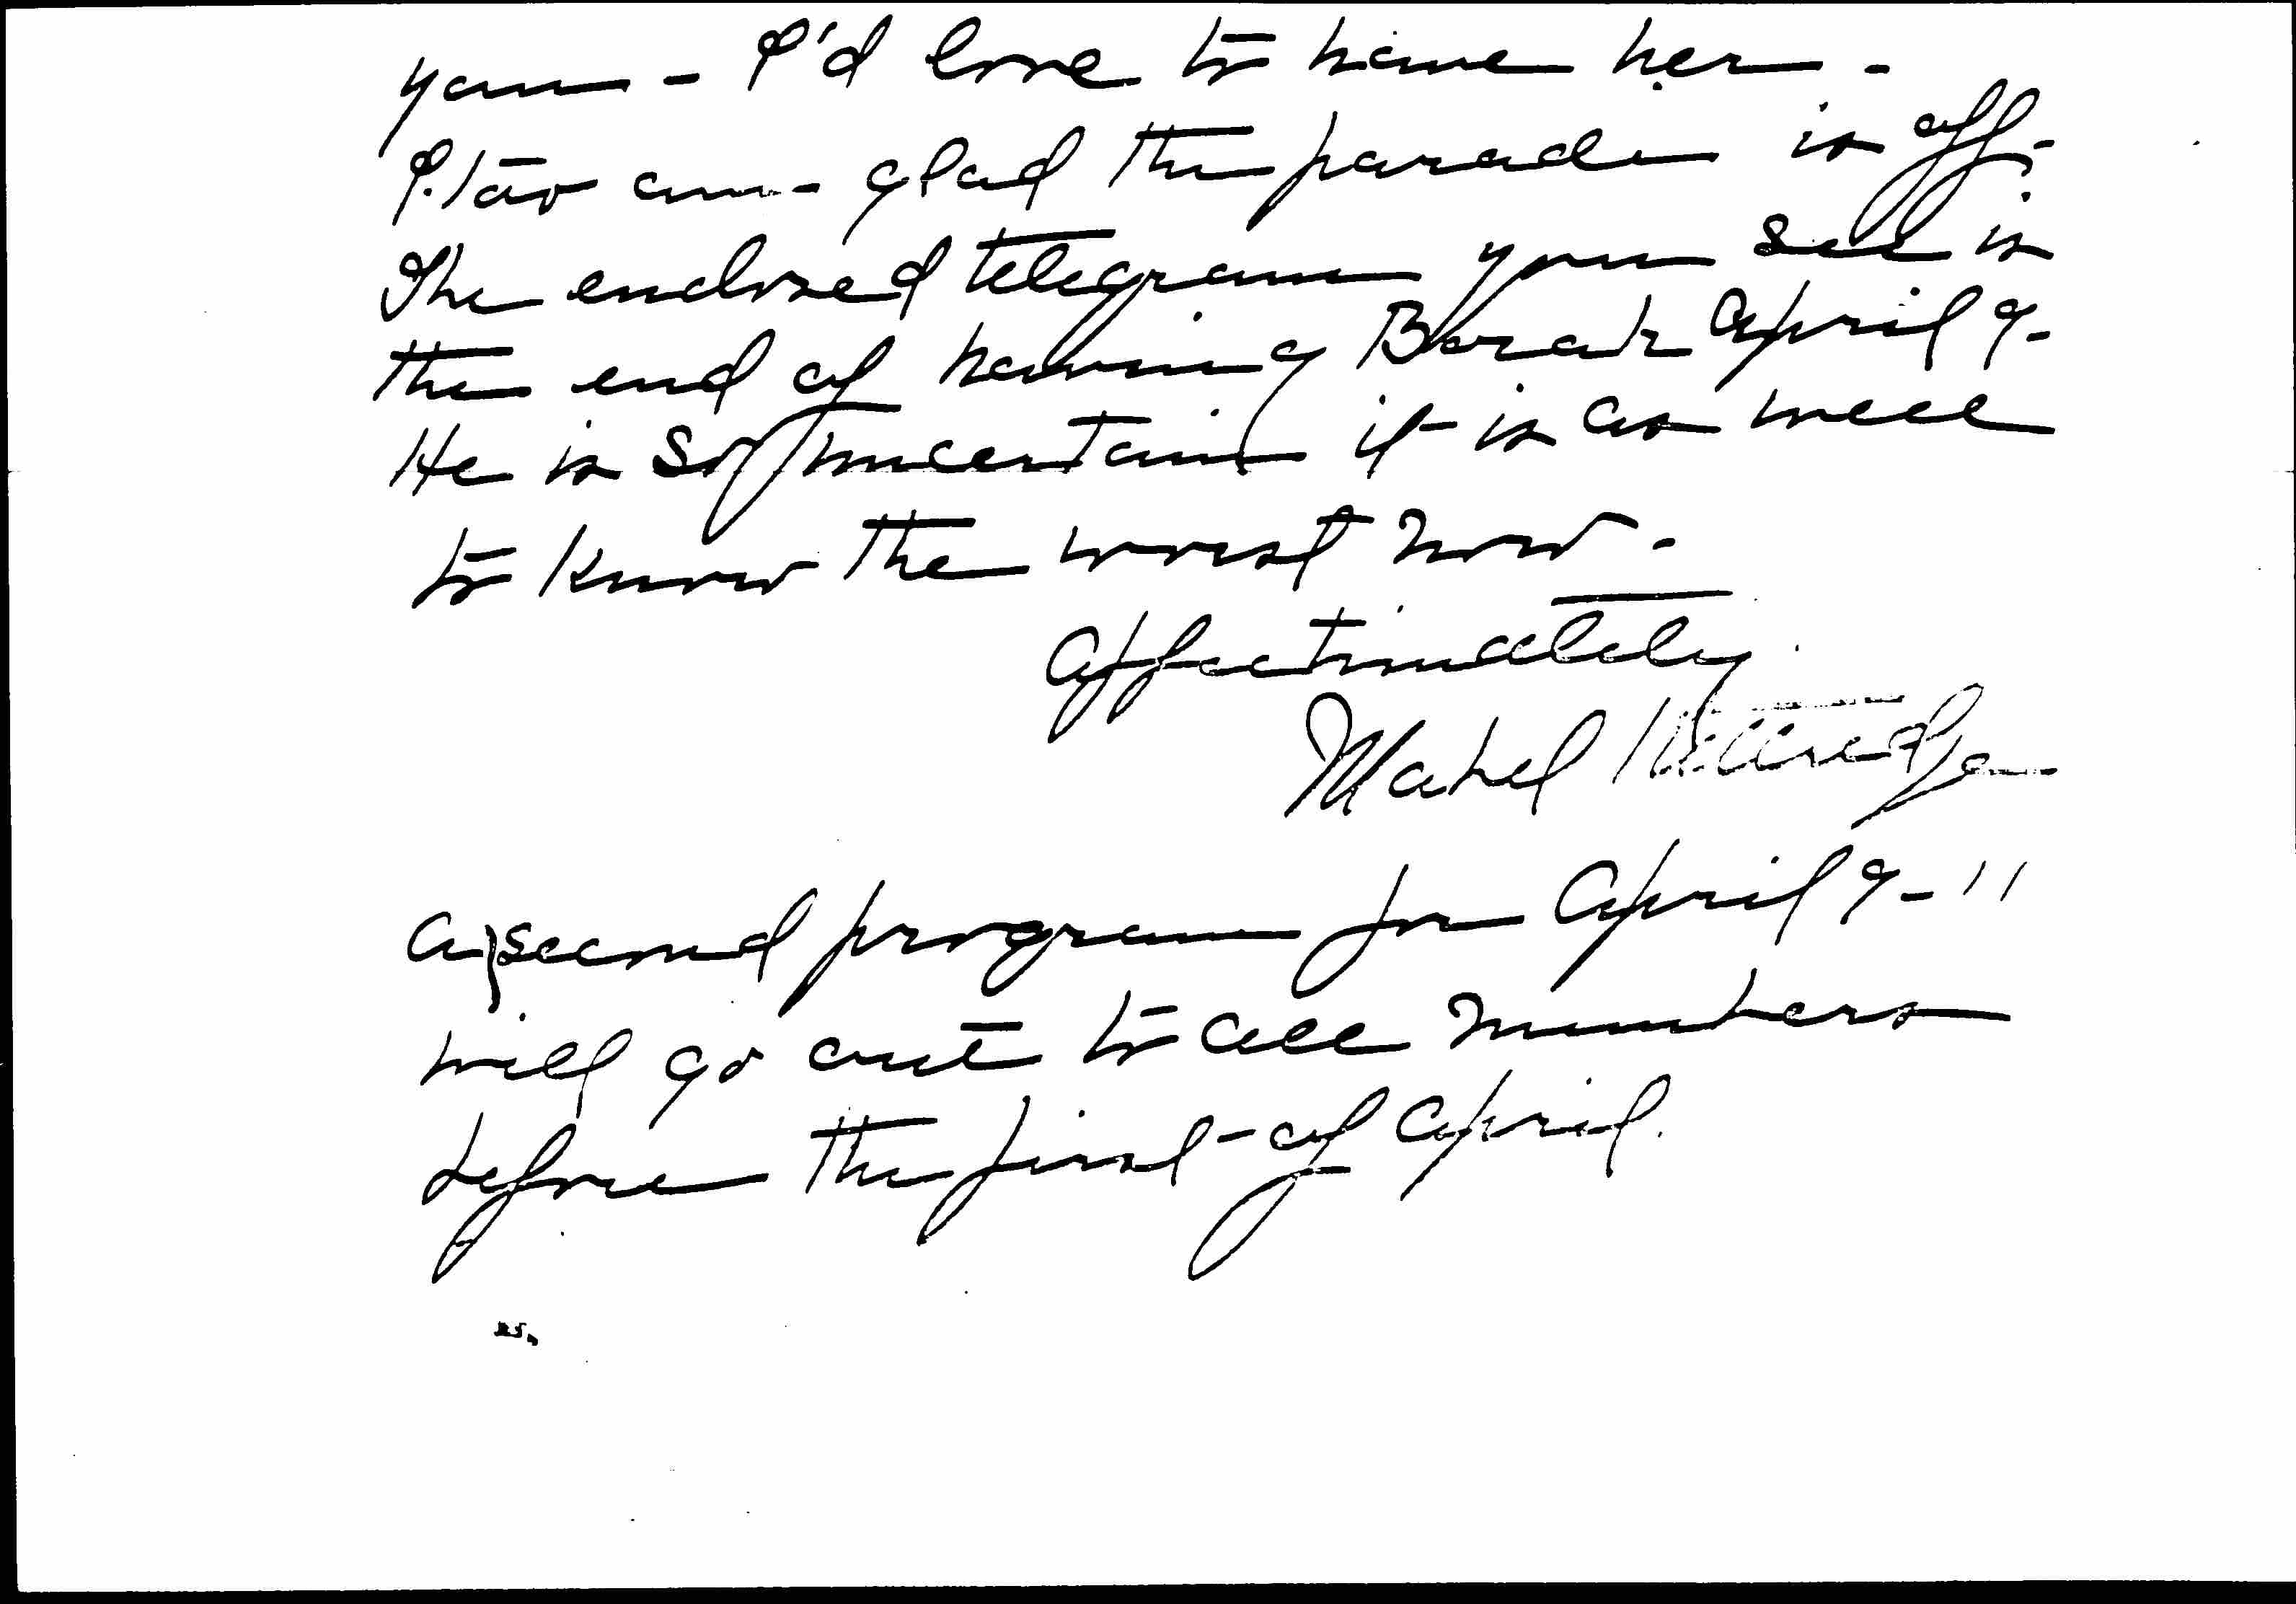 you - I'd love to have her -
I too am - glad the parade is off -
The enclosed telegram you see is
the end of having Borah April 9 -
He is so uncertain it is as well
to know the worst now -
Affectionately
Mabel Kittredge
A second program for April 9 - 11
will go out to all members
before the first of April.